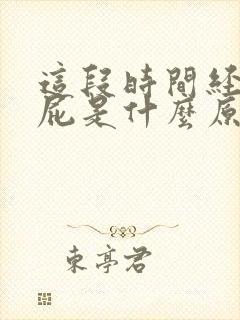 這段時間经
屁是什麼原
東亭君